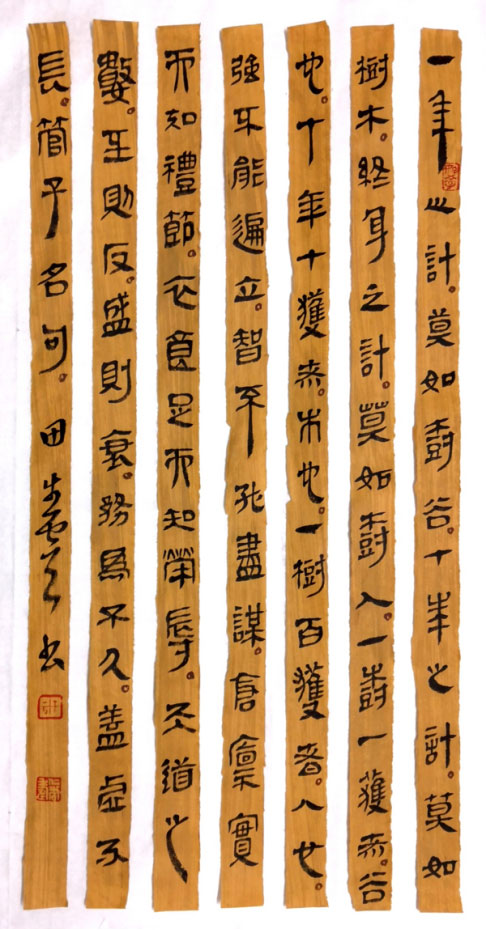 一年之計。莫如樹谷。十年之計。莫如
樹木。終身之計。莫如樹人。一樹一獲者。谷
也。十年十獲者。木也。一樹百獲者。人也。
強不能遍立。智不能盡謀。倉廩實
而知禮節。衣食足而知榮辱。天道之
數。至則反。盛則衰。務為不久。蓋虛不
長。管子名句。田書